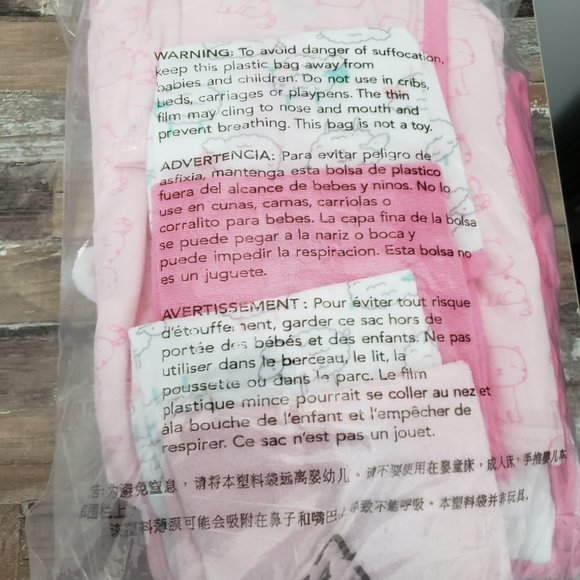 WARNING: To avoid danger of suffocation,
keep this plastic bag away from
babies and children. Do not use in cribs,
beds, carriages or playpens. The thin
film may cling to nose and mouth and
prevent breathing. This bag is not a toy.
ADVERTENCIA: Para evitar peligro de
asfixia, mantenga esta bolsa de plastico
fuera del alcance de bebes y ninos. No lo
use en cunas, camas, carriolas o
corralito para bebes. La capa fina de la bolsa
se puede pegar a la nariz o boca y
puede impedir la respiracion. Esta bolsa no
es un juguete.
AVERTISSEMENT : Pour éviter tout risque
d'étouffement, garder ce sac hors de
portée des bébés et des enfants. Ne pas
utiliser dans le berceau, le lit, la
poussette ou dans le parc. Le film
plastique mince pourrait se coller au nez et
àla bouche de l'enfant et l'empêcher de
respirer. Ce sac n'est pas un jouet.
为避免窒息，请将本塑料袋远离婴幼儿。请不要使用在婴童床，成人床，手推婴儿车
和围栏上
该塑料薄膜可能会吸附在鼻子和嘴巴上导致不能呼吸。本塑料袋并非玩具。